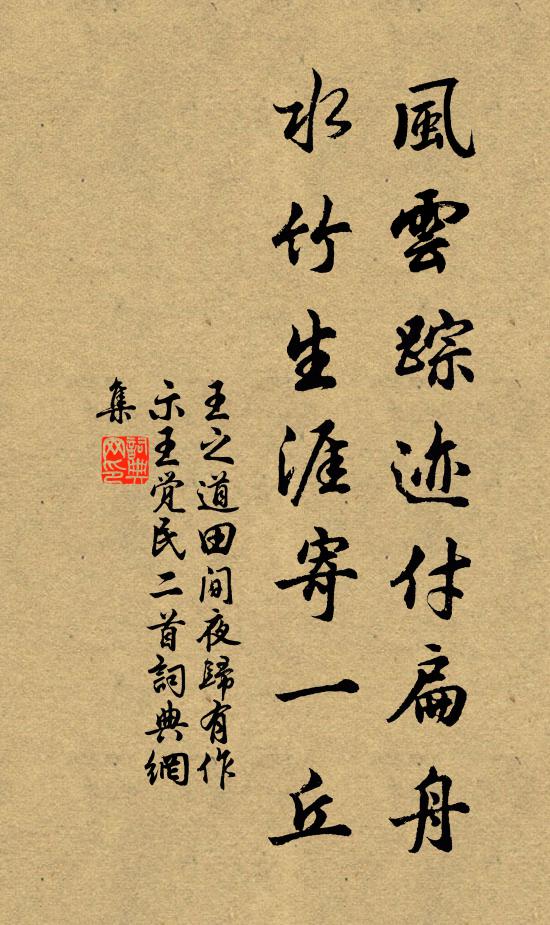 風雲踪迹付扁舟
水竹生涯寄一丘
王之道田间夜歸有作
示王觉民二首詞典網
集
詞典
网印